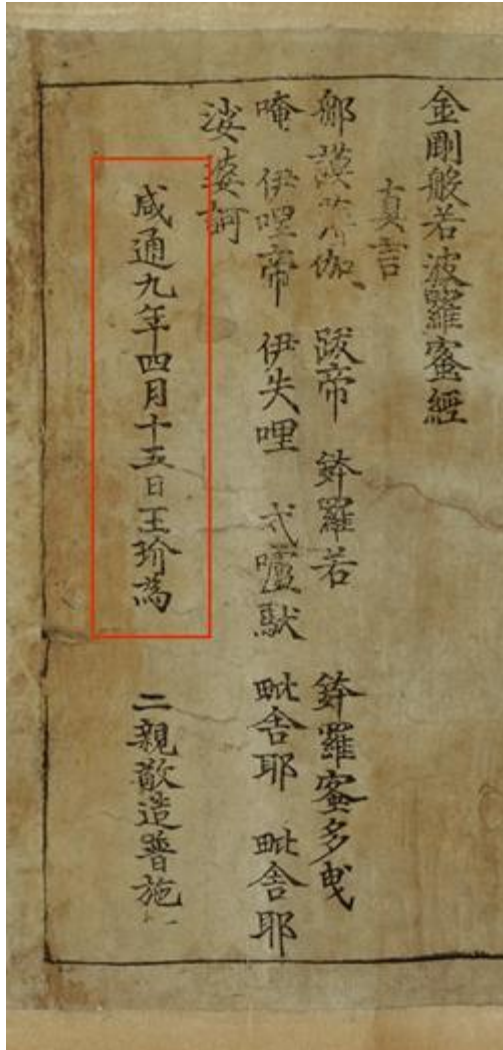 金剛般若波羅蜜經
真言
那謨薄伽跋帝 鉢羅若 鉢羅蜜多曳
唵 伊哩帝 伊失哩 式嚧馱 毗舍耶 毗舍耶
娑婆訶
咸通九年四月十五日王玠為 二親敬造普施